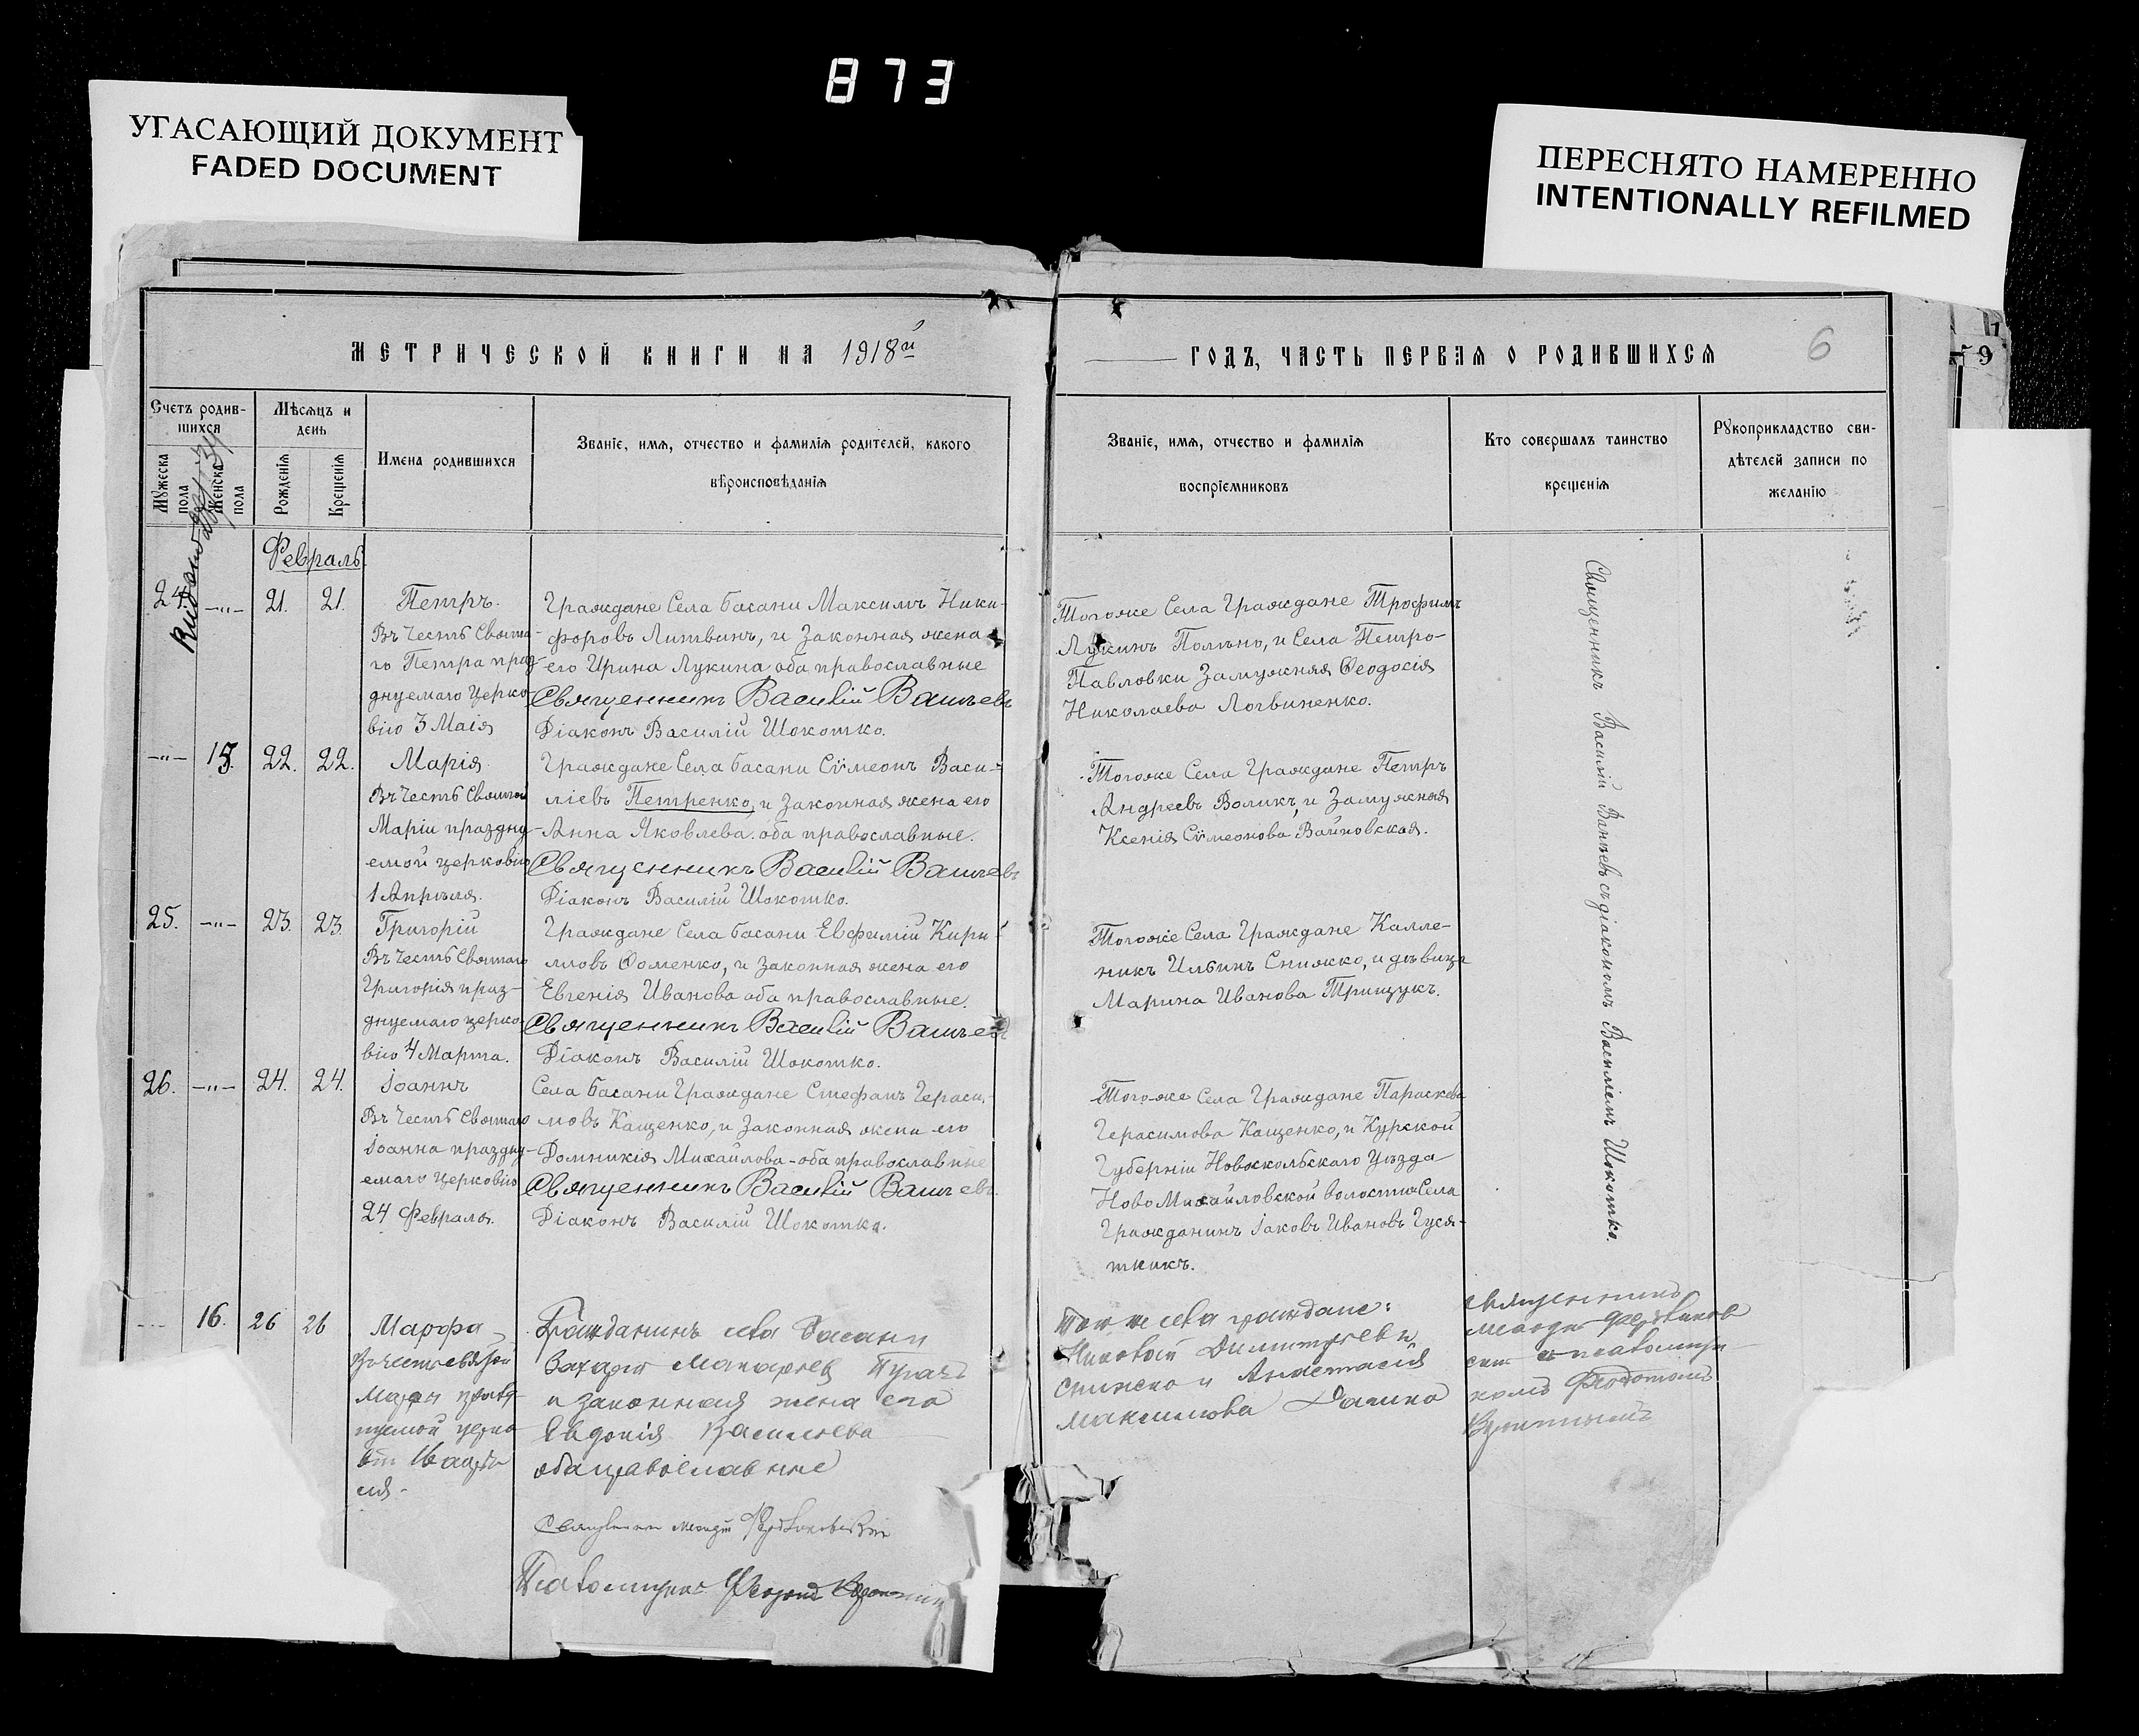 873
УГАСАЮЩИЙ ДОКУМЕНТ
FADED DOCUMENT
ПЕРЕСНЯТО НАМЕРЕННО
INTENTIONALLY REFILMED
МЕТРИЧЕСКОЙ КНИГИ НА 1918й
ГОДЪ, ЧАСТЬ ПЕРВАЯ О РОДИВШИХСЯ
6
Счетъ родив-
шихся
Мужеска
пола
Женска
пола
Мѣсяцъ и
день
Рожденія
Крещенія
Имена родившихся
Званіе, имя, отчество и фамилія родителей, какого
вѣроисповѣданія
Званіе, имя, отчество и фамилія
воспріемниковъ
Кто совершалъ таинство
крещенія
Рукоприкладство сви-
дѣтелей записи по
желанію
Февраль
24. -„- 21. 21.
Петръ.
Въ Честь Свята-
го Петра праз-
днуемаго Церко-
вію 3 Маія
Граждане Села Басани Максимъ Ники-
форовъ Литвинъ, и Законная жена
его Ирина Лукина оба православные
Священникъ Василій
Діаконъ Василій Шокотко.
Тогоже Села Граждане Трофимъ
Лукинъ и Села Петро-
Павловки Замужняя Ѳеодосія
Николаева Логвиненко.
-„- 15. 22. 22.
Марія
Въ Честь Святой
Маріи праздну-
емой церковію
1 Апрѣля.
Граждане Села Басани Сѵмеонъ Васи-
ліевъ Петренко, и Законная жена его
Анна Яковлева. оба православные.
Священникъ Василій
Діаконъ Василій Шокотко.
Тогоже Села Граждане Петръ
Андреевъ Воликъ, и Замужняя
Ксенія Сѵмеонова Войновская.
25. -„- 23. 23.
Григорій
Въ Честь Святаго
Григорія праз-
днуемаго церко-
вію 4 Марта.
Граждане Села Басани Евфимій Кири-
лловъ Ѳоменко, и Законная жена его
Евгенія Иванова оба православные.
Священникъ Василій
Діаконъ Василій Шокотко.
Тогоже Села Граждане Калле-
никъ Ильинъ Снижко, и дѣвица
Марина Иванова Трищукъ.
26. -„- 24. 24.
Іоаннъ
Въ Честь Святаго
Іоанна праздну-
емаго Церковію
24 Февраля.
Села Басани Граждане Стефанъ Гераси-
мовъ Кащенко, и Законная жена его
Домникія Михайлова - оба православные
Священникъ Василій
Діаконъ Василій Шокотко.
Тогоже Села Граждане Параскева
Герасимова Кащенко, и Курской
Губерніи Новоскольскаго Уѣзда
Ново Михайловской волости Села
Гражданинъ Іаковъ Ивановъ Гуся-
тникъ.
Священникъ Василій съ діакономъ Василіемъ Шокотко.
16. 26 26
Марфа
Марфы
церко
16
Гражданинъ села Басани
Захарій Макарьев
и законная жена его
Евдокія Васильева
оба православные
Священникъ
Псаломщикъ
Того же села граждане:
Димитріевъ
и Анастасія
Максимова
Священникъ